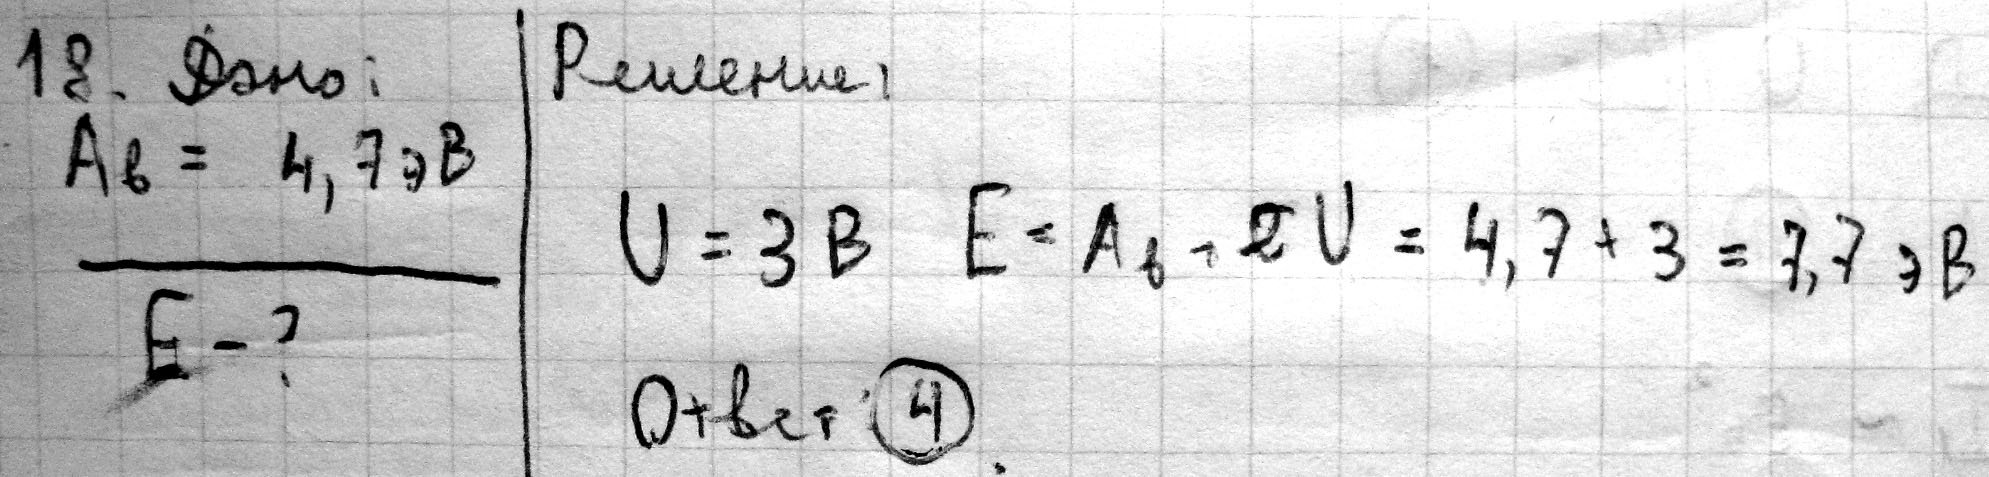 18. Дано:
Aв = 4,7 эВ
E - ?
Решение:
U = 3 В E = Aв + eU = 4,7 + 3 = 7,7 эВ
Ответ: 4.